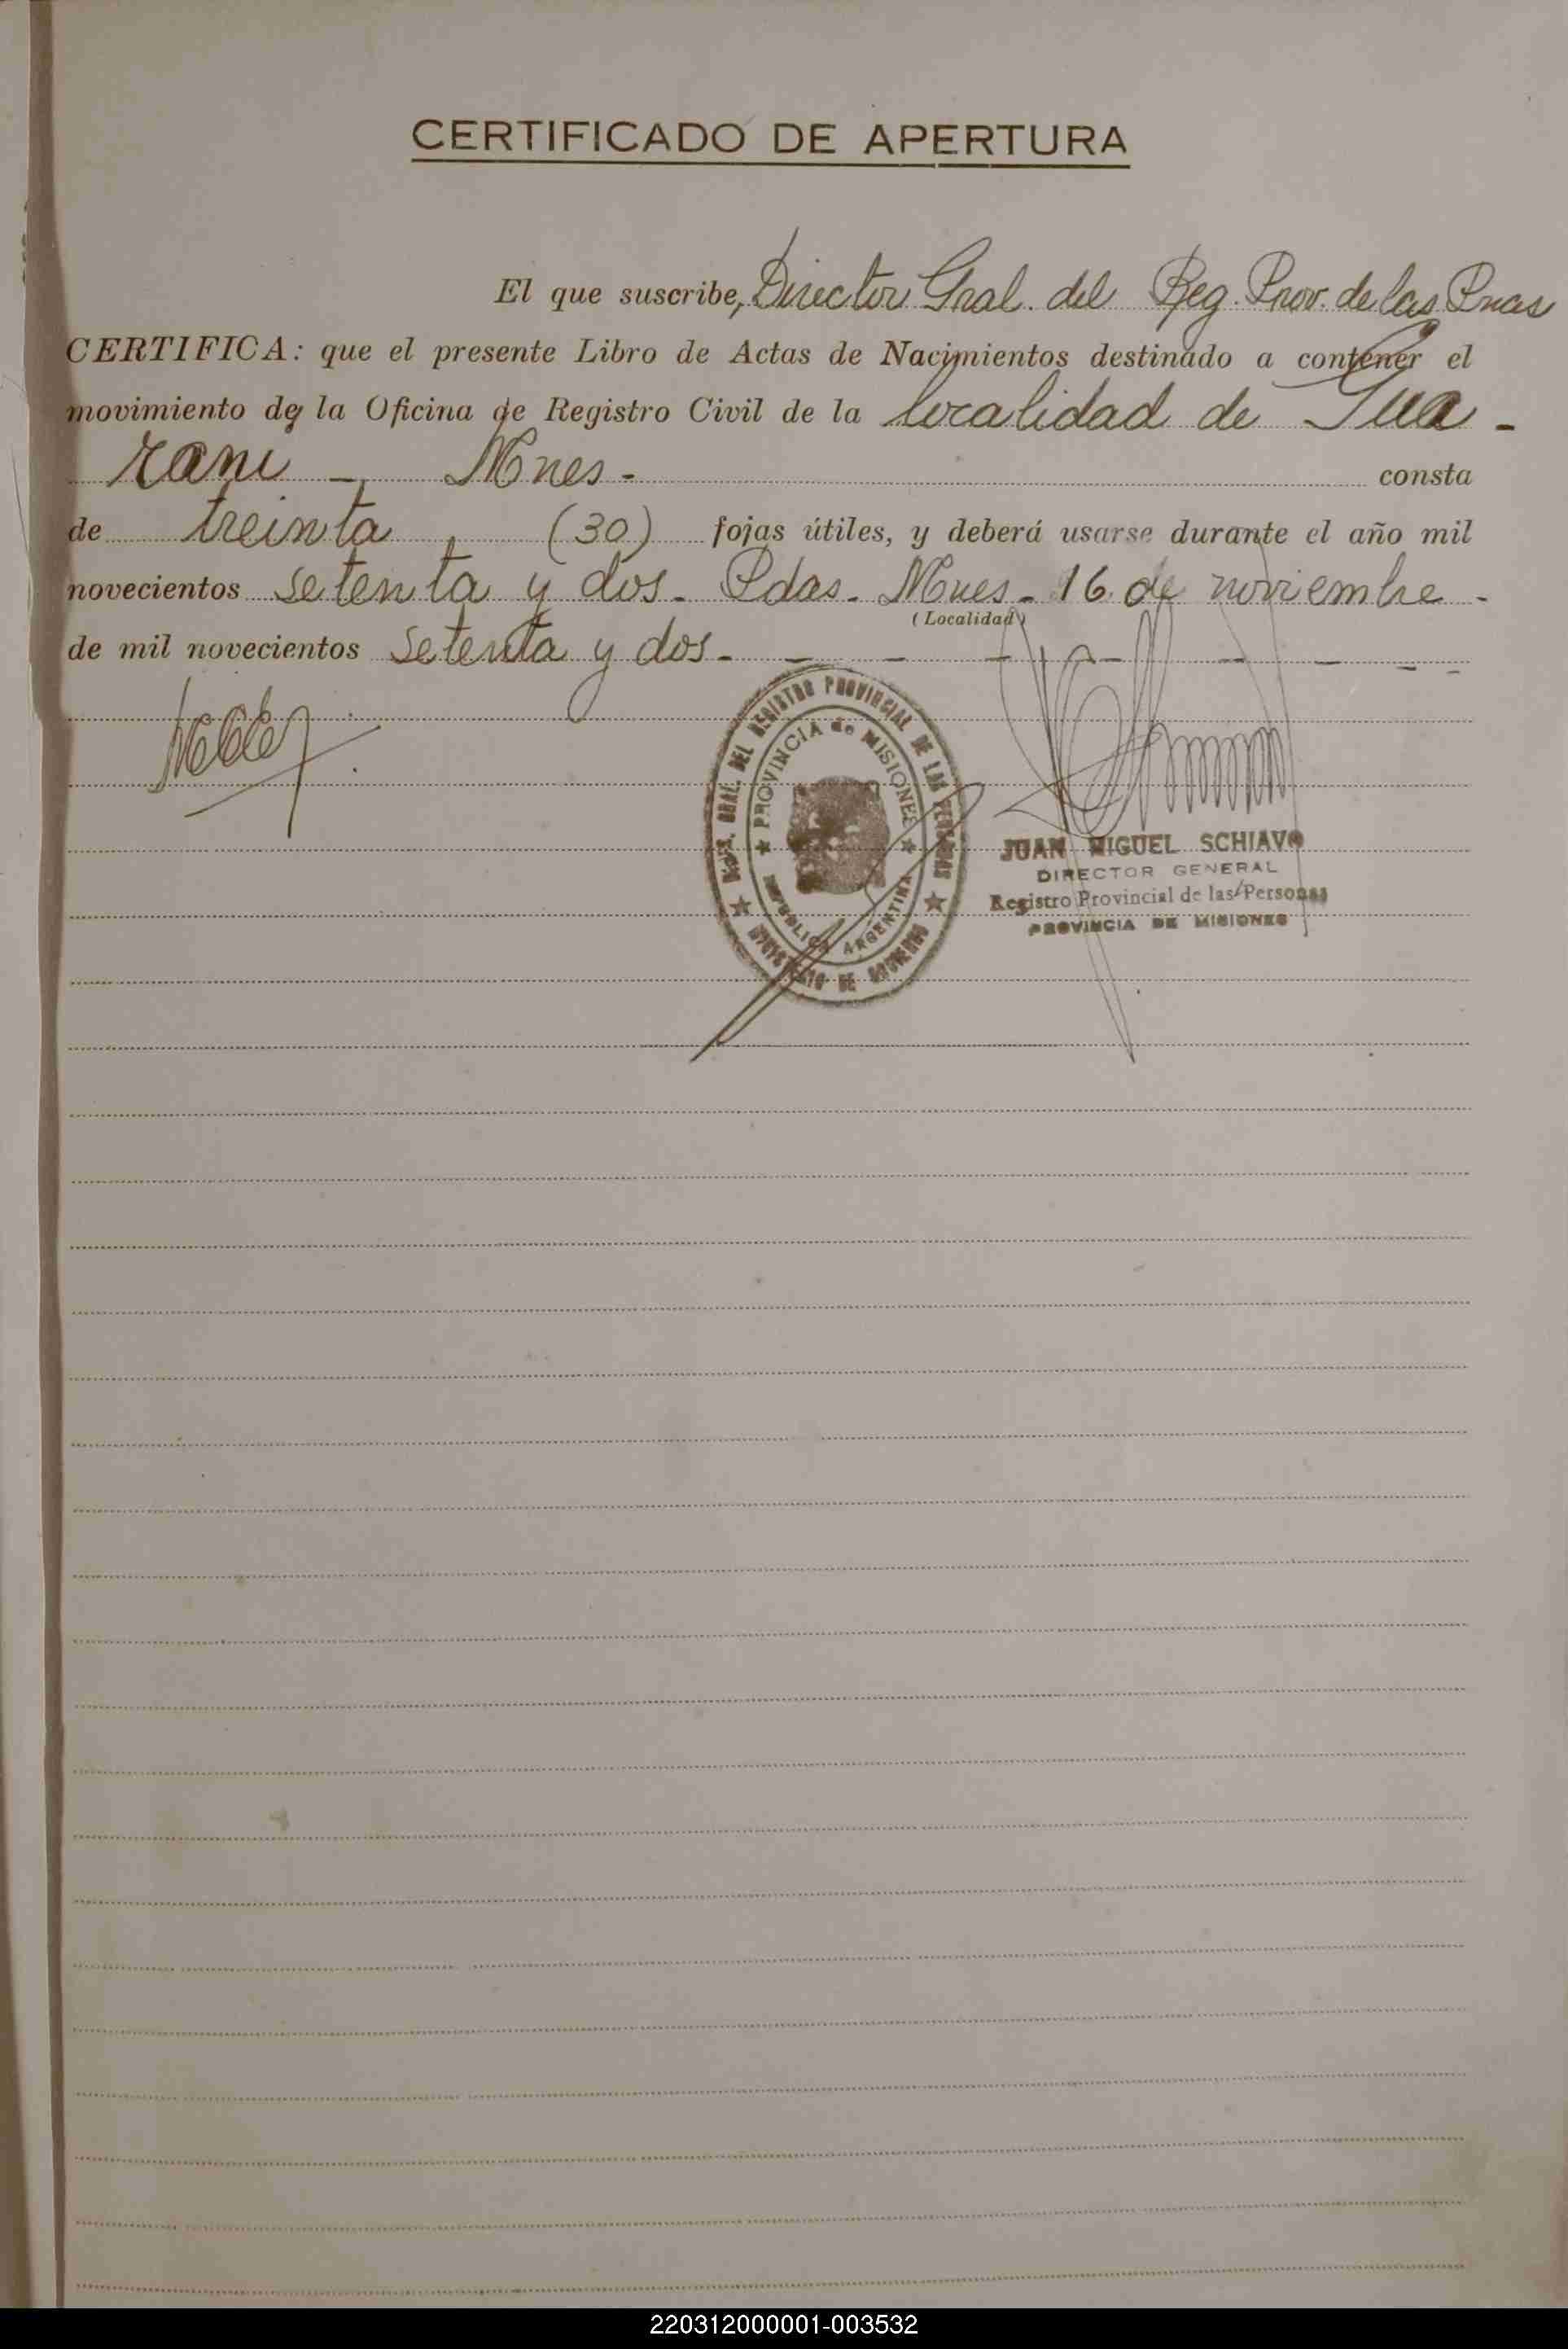 CERTIFICADO DE APERTURA
El que suscribe, Director Gral. del Reg. Prov. de las Pnas
CERTIFICA: que el presente Libro de Actas de Nacimientos destinado a contener el
movimiento de la Oficina de Registro Civil de la localidad de Gua -
rani - Mnes - consta
de treinta (30) fojas útiles, y deberá usarse durante el año mil
novecientos setenta y dos - Pdas - Mnes - 16 de noviembre -
(Localidad)
de mil novecientos setenta y dos - - - - - - - - -
DIR. GRAL. DEL REGISTRO PROVINCIAL DE LAS PERSONAS
PROVINCIA de MISIONES
REPUBLICA ARGENTINA
MINISTERIO DE GOBIERNO
JUAN MIGUEL SCHIAVO
DIRECTOR GENERAL
Registro Provincial de las Personas
PROVINCIA DE MISIONES
220312000001-003532